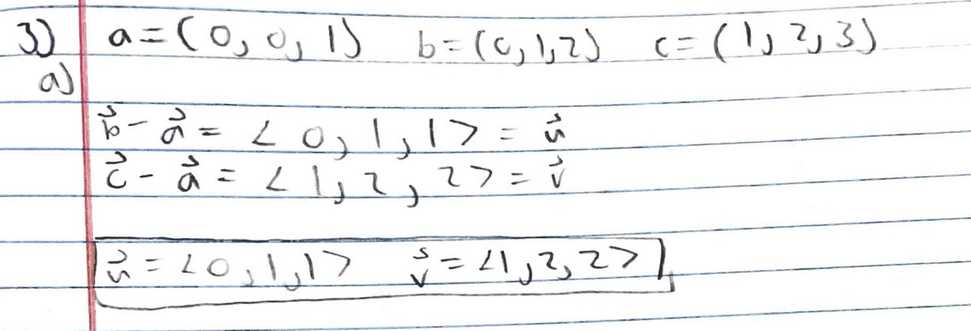 3) a=(0, 0, 1) b=(0,1,2) c=(1,2,3)
a)
b⃗ - a⃗ = <0, 1, 1> = u⃗
c⃗ - a⃗ = <1, 2, 2> = v⃗
u⃗ = <0,1,1> v⃗ = <1,2,2>